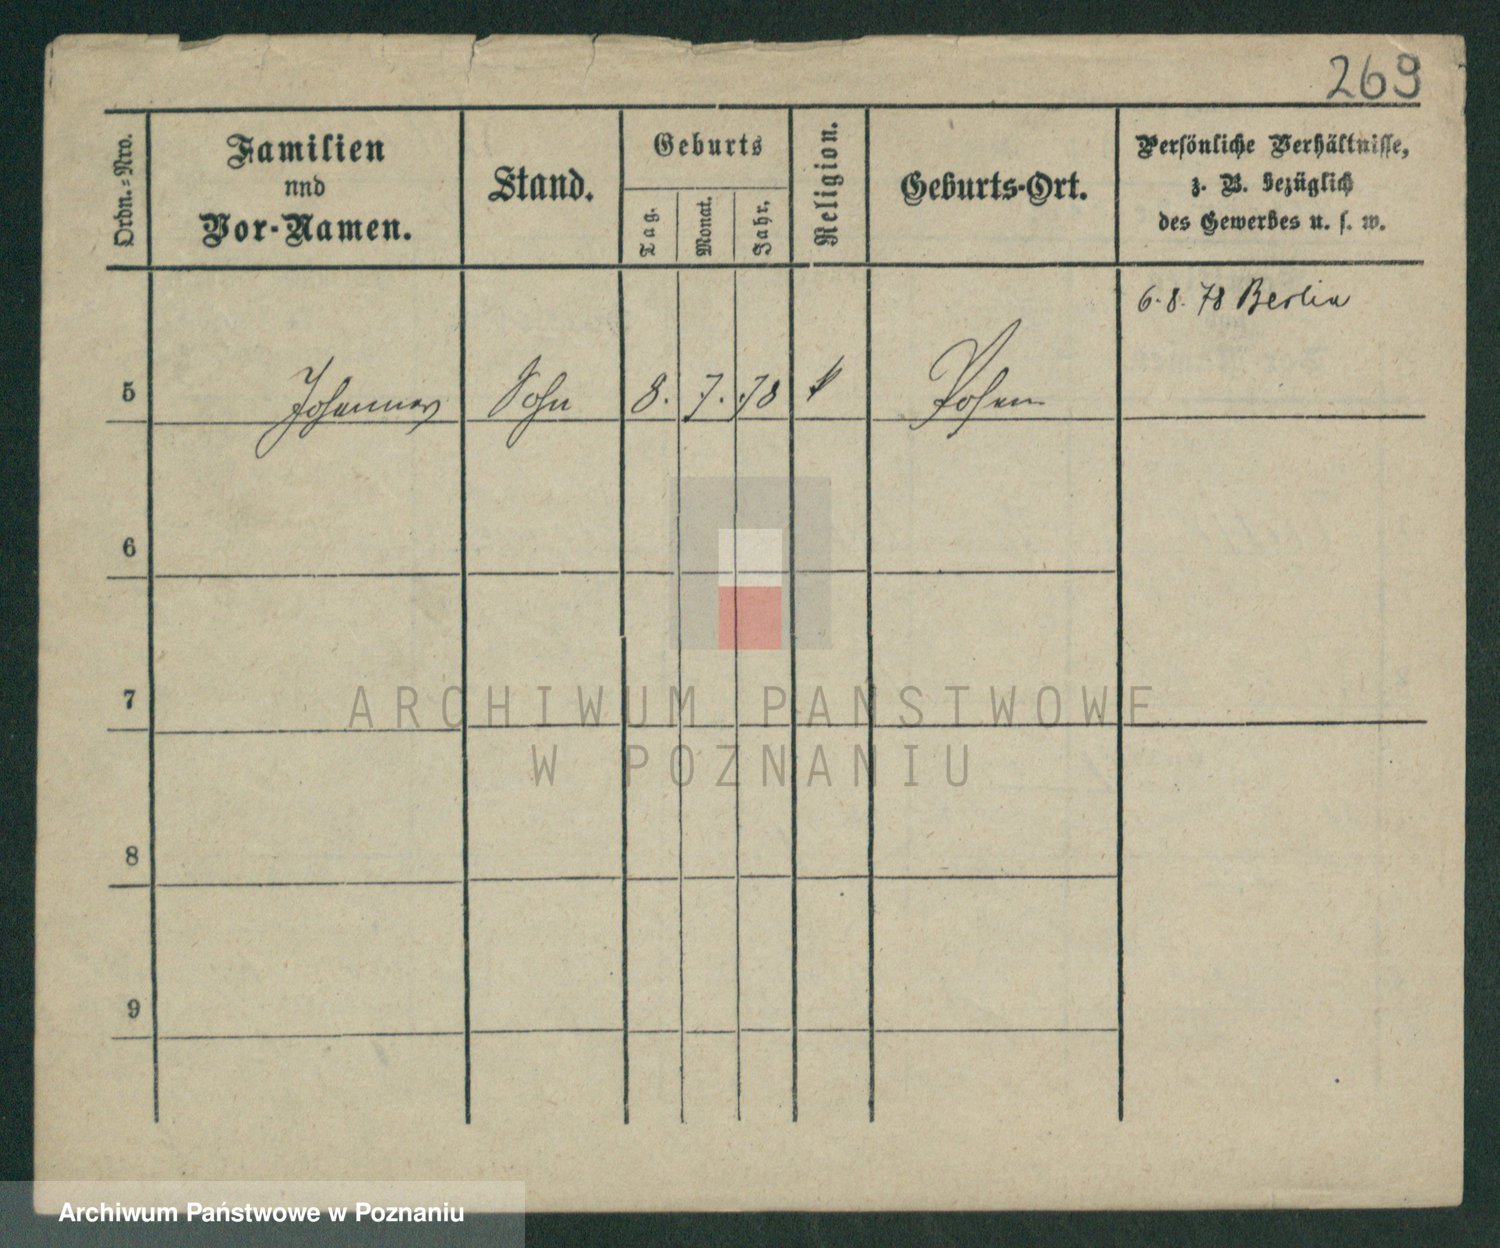 269
Ordn.=Nro.
Familien
nnd
Vor-Namen.
Stand.
Geburts
Tag.
Monat.
Jahr.
Religion.
Geburts-Ort.
Persönliche Verhältnisse,
z. B. bezüglich
des Gewerbes u. s. w.
6. 8. 78 Berlin
5 Johannes Sohn 8. 7. 78 Posen
6
7
8
9
ARCHIWUM PAŃSTWOWE
W POZNANIU
Archiwum Państwowe w Poznaniu